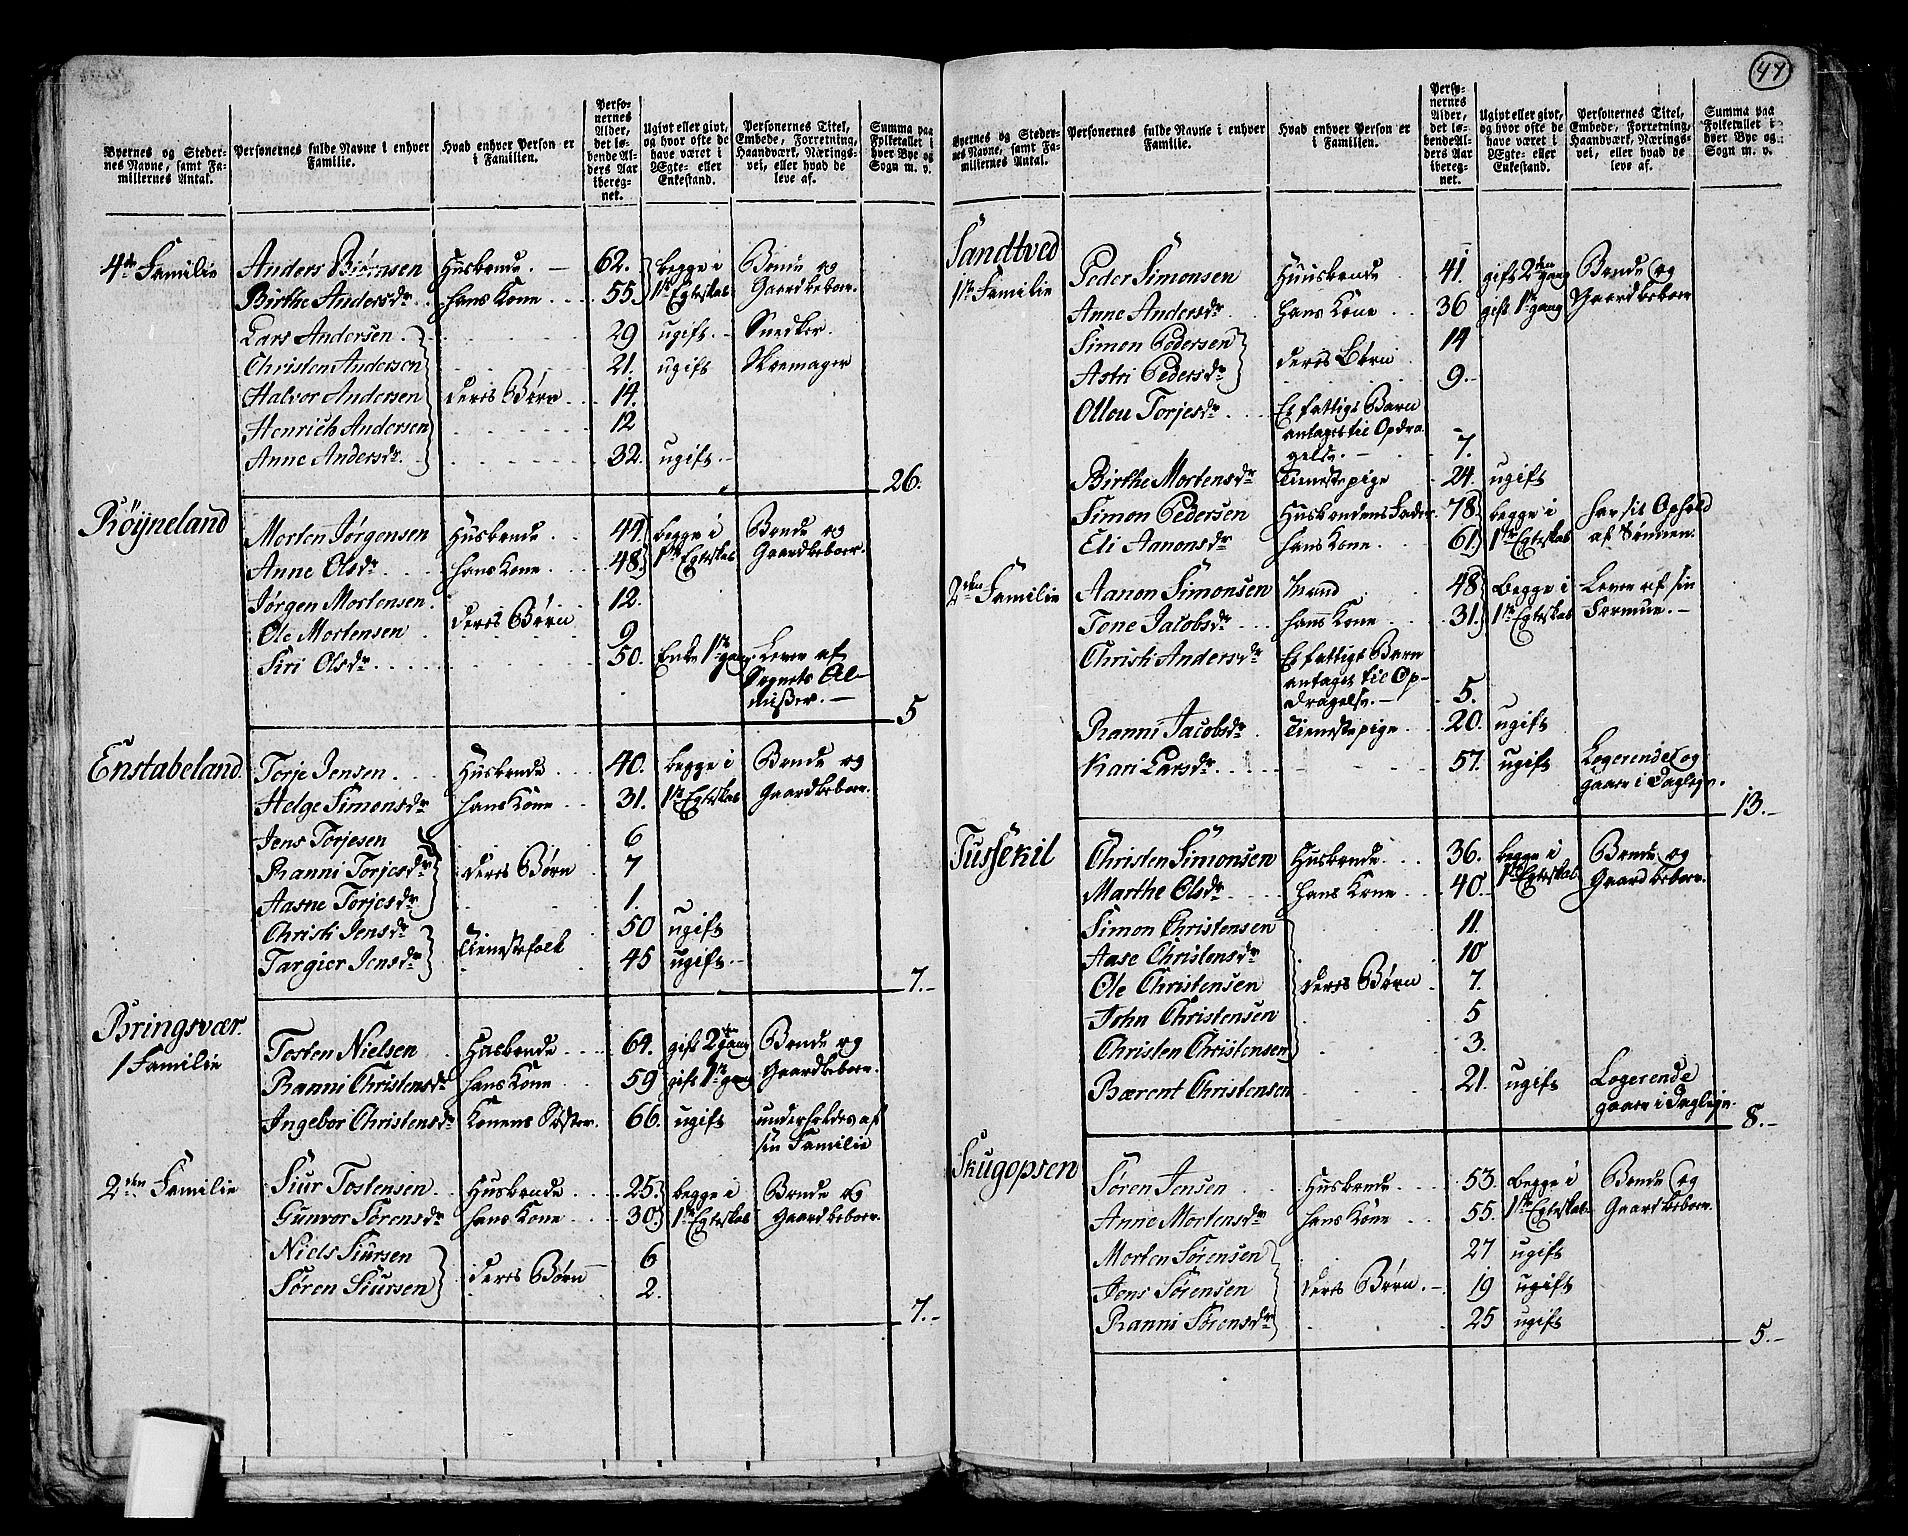 44
Byernes og Steder-
nes Navne, samt Fa-
miliernes Antal.
Personernes fulde Navne i enhver
Familie.
Hvad enhver Person er
i Familien.
Perso-
nernes
Alder,
det lø-
bende Al-
ders Aar
iberegnet.
Ugivt eller givt,
og hvor ofte de
have været i
Ægte- eller
Enkestand.
Personernes Titel,
Embede, Forretning,
Haandværk, Nærings-
vei, eller hvad de
leve af.
Summa paa
Folketallet i
hver Bye og
Sogn m. v.
4de Familie Anders Biørnsen Husbonde 62. begge i Bonde og
Birthe Andersdr. hans Kone 55. 1ste Egteskab Gaardbeboer.
Lars Andersen 29 ugift Snedker.
Christen Andersen 21. ugift Skomager
Halvor Andersen deres Børn 14.
Henrich Andersen 12
Anne Andersdr. 32. ugift.
26.
Röyneland Morten Jørgensen Husbonde 44. begge i Bonde og
Anne Olsdr. hans Kone 48. 1ste Egteskab Gaardbeboer.
Jørgen Mortensen 12.
Ole Mortensen deres Børn 9
Siri Olsdr. 50. Enke 1ste gang Lever af
Sognets Al-
misser.
5
Enstabeland Torje Jensen Husbonde 40. begge i Bonde og
Helge Simonsdr hans Kone 31. 1ste Egteskab Gaardbeboer.
Jens Torjesen 6
Ranni Torjesdr deres Børn 7
Aasne Torjesdr 1.
Christi Jensdr 50 ugift
Targier Jensdr Tienestefolk 45 ugift.
7.
Bringsvær.
1 Familie Tosten Nielsen Husbonde 64. gift 2 gang Bonde og
Ranni Christensdr hans Kone 59 gift 1ste gang Gaardbeboer.
Ingebor Christensdr Konens Søster. 66. ugift underholdes af
sin Familie
2den Familie Siur Tostensen Husbonde 25. begge i Bonde og
Gunvor Sørensdr hans Kone 30. 1ste Egteskab Gaardbeboer.
Niels Siursen 6
Søren Siursen deres Børn 2.
7.
Byernes og Steder-
nes Navne, samt Fa-
miliernes Antal.
Personernes fulde Navne i enhver
Familie.
Hvad enhver Person er
i Familien.
Perso-
nernes
Alder,
det lø-
bende Al-
ders Aar
iberegnet.
Ugivt eller givt,
og hvor ofte de
have været i
Ægte- eller
Enkestand.
Personernes Titel,
Embede, Forretning,
Haandværk, Nærings-
vei, eller hvad de
leve af.
Summa paa
Folketallet i
hver Bye og
Sogn m. v.
Sandtved
1ste Familie Peder Simonsen Huusbonde 41. gift 2den gang Bonde og
Anne Andersdr. hans Kone 36 gift 1ste gang Gaardbeboer
Simon Pedersen 14
Astri Pedersdr deres Børn 9.
Ollou Torjesdr. Et fattigt Barn
antaget til Opdra-
gelse. 7.
Birthe Mortensdr Tienestepige 24. ugift
Simon Pedersen Husbondens Fader 78. begge i har sit Ophold
Eli Aanonsdr hans Kone 61. 1ste Egteskab af Sønnen.
2den Familie Aanon Simonsen Mand 48 Begge i Lever af sin
Tone Jacobsdr hans Kone 31. 1ste Egteskab Formue.
Christi Andersdr Et fattigt Barn
antaget til Op-
dragelse. 5.
Ranni Jacobsdr Tienestepige 20. ugift
Kari Larsdr. 57. ugift Logerende og
gaaer i Dagleye.
13.
Tussekil Christen Simonsen Husbonde 36. begge i Bonde og
Marthe Olsdr. hans Kone 40. 1ste Egteskab Gaardbeboer.
Simon Christensen 11.
Aase Christensdr 10
Ole Christensen deres Børn 7.
John Christensen 5
Christen Christensen 3.
Bærent Christensen 21. ugift Logerende
gaaer i Dagleye.
8.
Skugopsen Søren Jensen Husbonde 53. Begge i Bonde og
Anne Mortensdr hans Kone 55. 1ste Egteskab Gaardbeboer.
Morten Sørensen 27 ugift
Jens Sørensen deres Børn 19 ugift
Ranni Sørensdr 25 ugift
5.